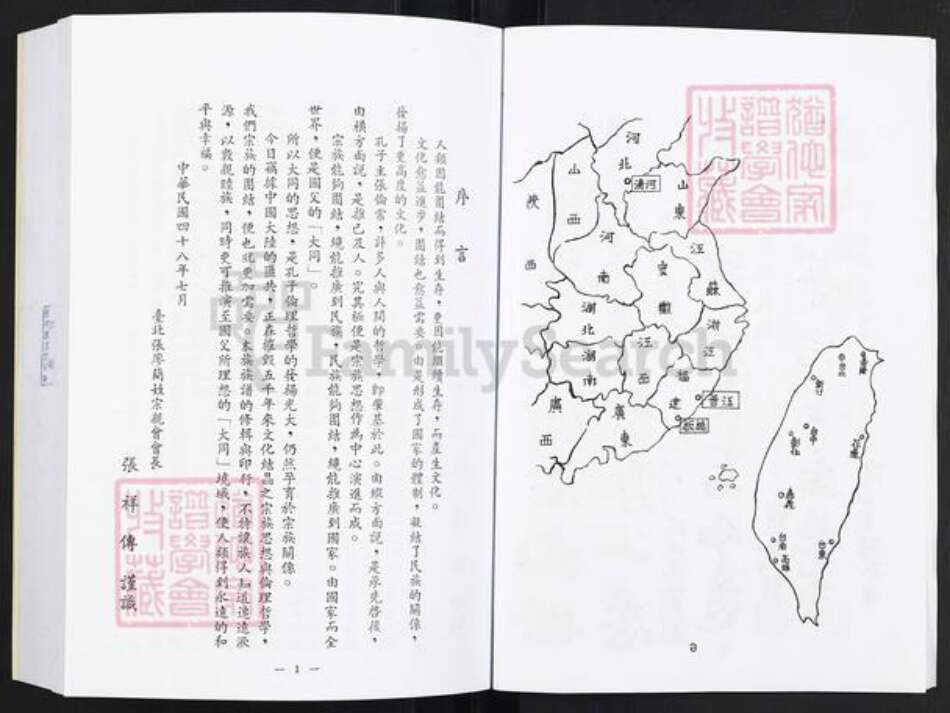 序言
人類因能團結而得到生存，更因能繼續生存，而產生文化。
文化愈益進步，團結也愈益需要。由是形成了國家的體制，凝結了民族的關係，
發揚了更高度的文化。
孔子主張倫常，許多人與人間的哲學，即肇基於此。由縱方面說，是承先啓後，
由橫方面說，是推己及人。究其極便是宗族思想作為中心演進而成。
宗族能夠團結，纔能推廣到民族，民族能夠團結，纔能推廣到國家。由國家而全
世界，便是國父的「大同」。
所以大同的思想，是孔子倫理哲學的發揚光大，仍然孕育於宗族關係。
今日竊據中國大陸的匪共，正在摧毀五千年來文化結晶之宗族思想與倫理哲學，
我們宗族的團結，便也就更加需要。本族族譜的修輯與印行，不特讓族人知道遠遠淵
源，以敦親睦族，同時更可推演至國父所理想的「大同」境域，使人類得到永遠的和
平與幸福。
中華民國四十八年七月
臺北張廖簡姓宗親會會長
張祥傳謹識
— 1 —
河北
湯河
山東
山西
陝西
河南
江蘇
安徽
湖北
浙江
江西
湖南
福建
晉江
廣東
廣西
台北
基隆
新竹
台中
彰化
花蓮
嘉義
台南
高雄
台東
譜學會
收藏
FamilySearch